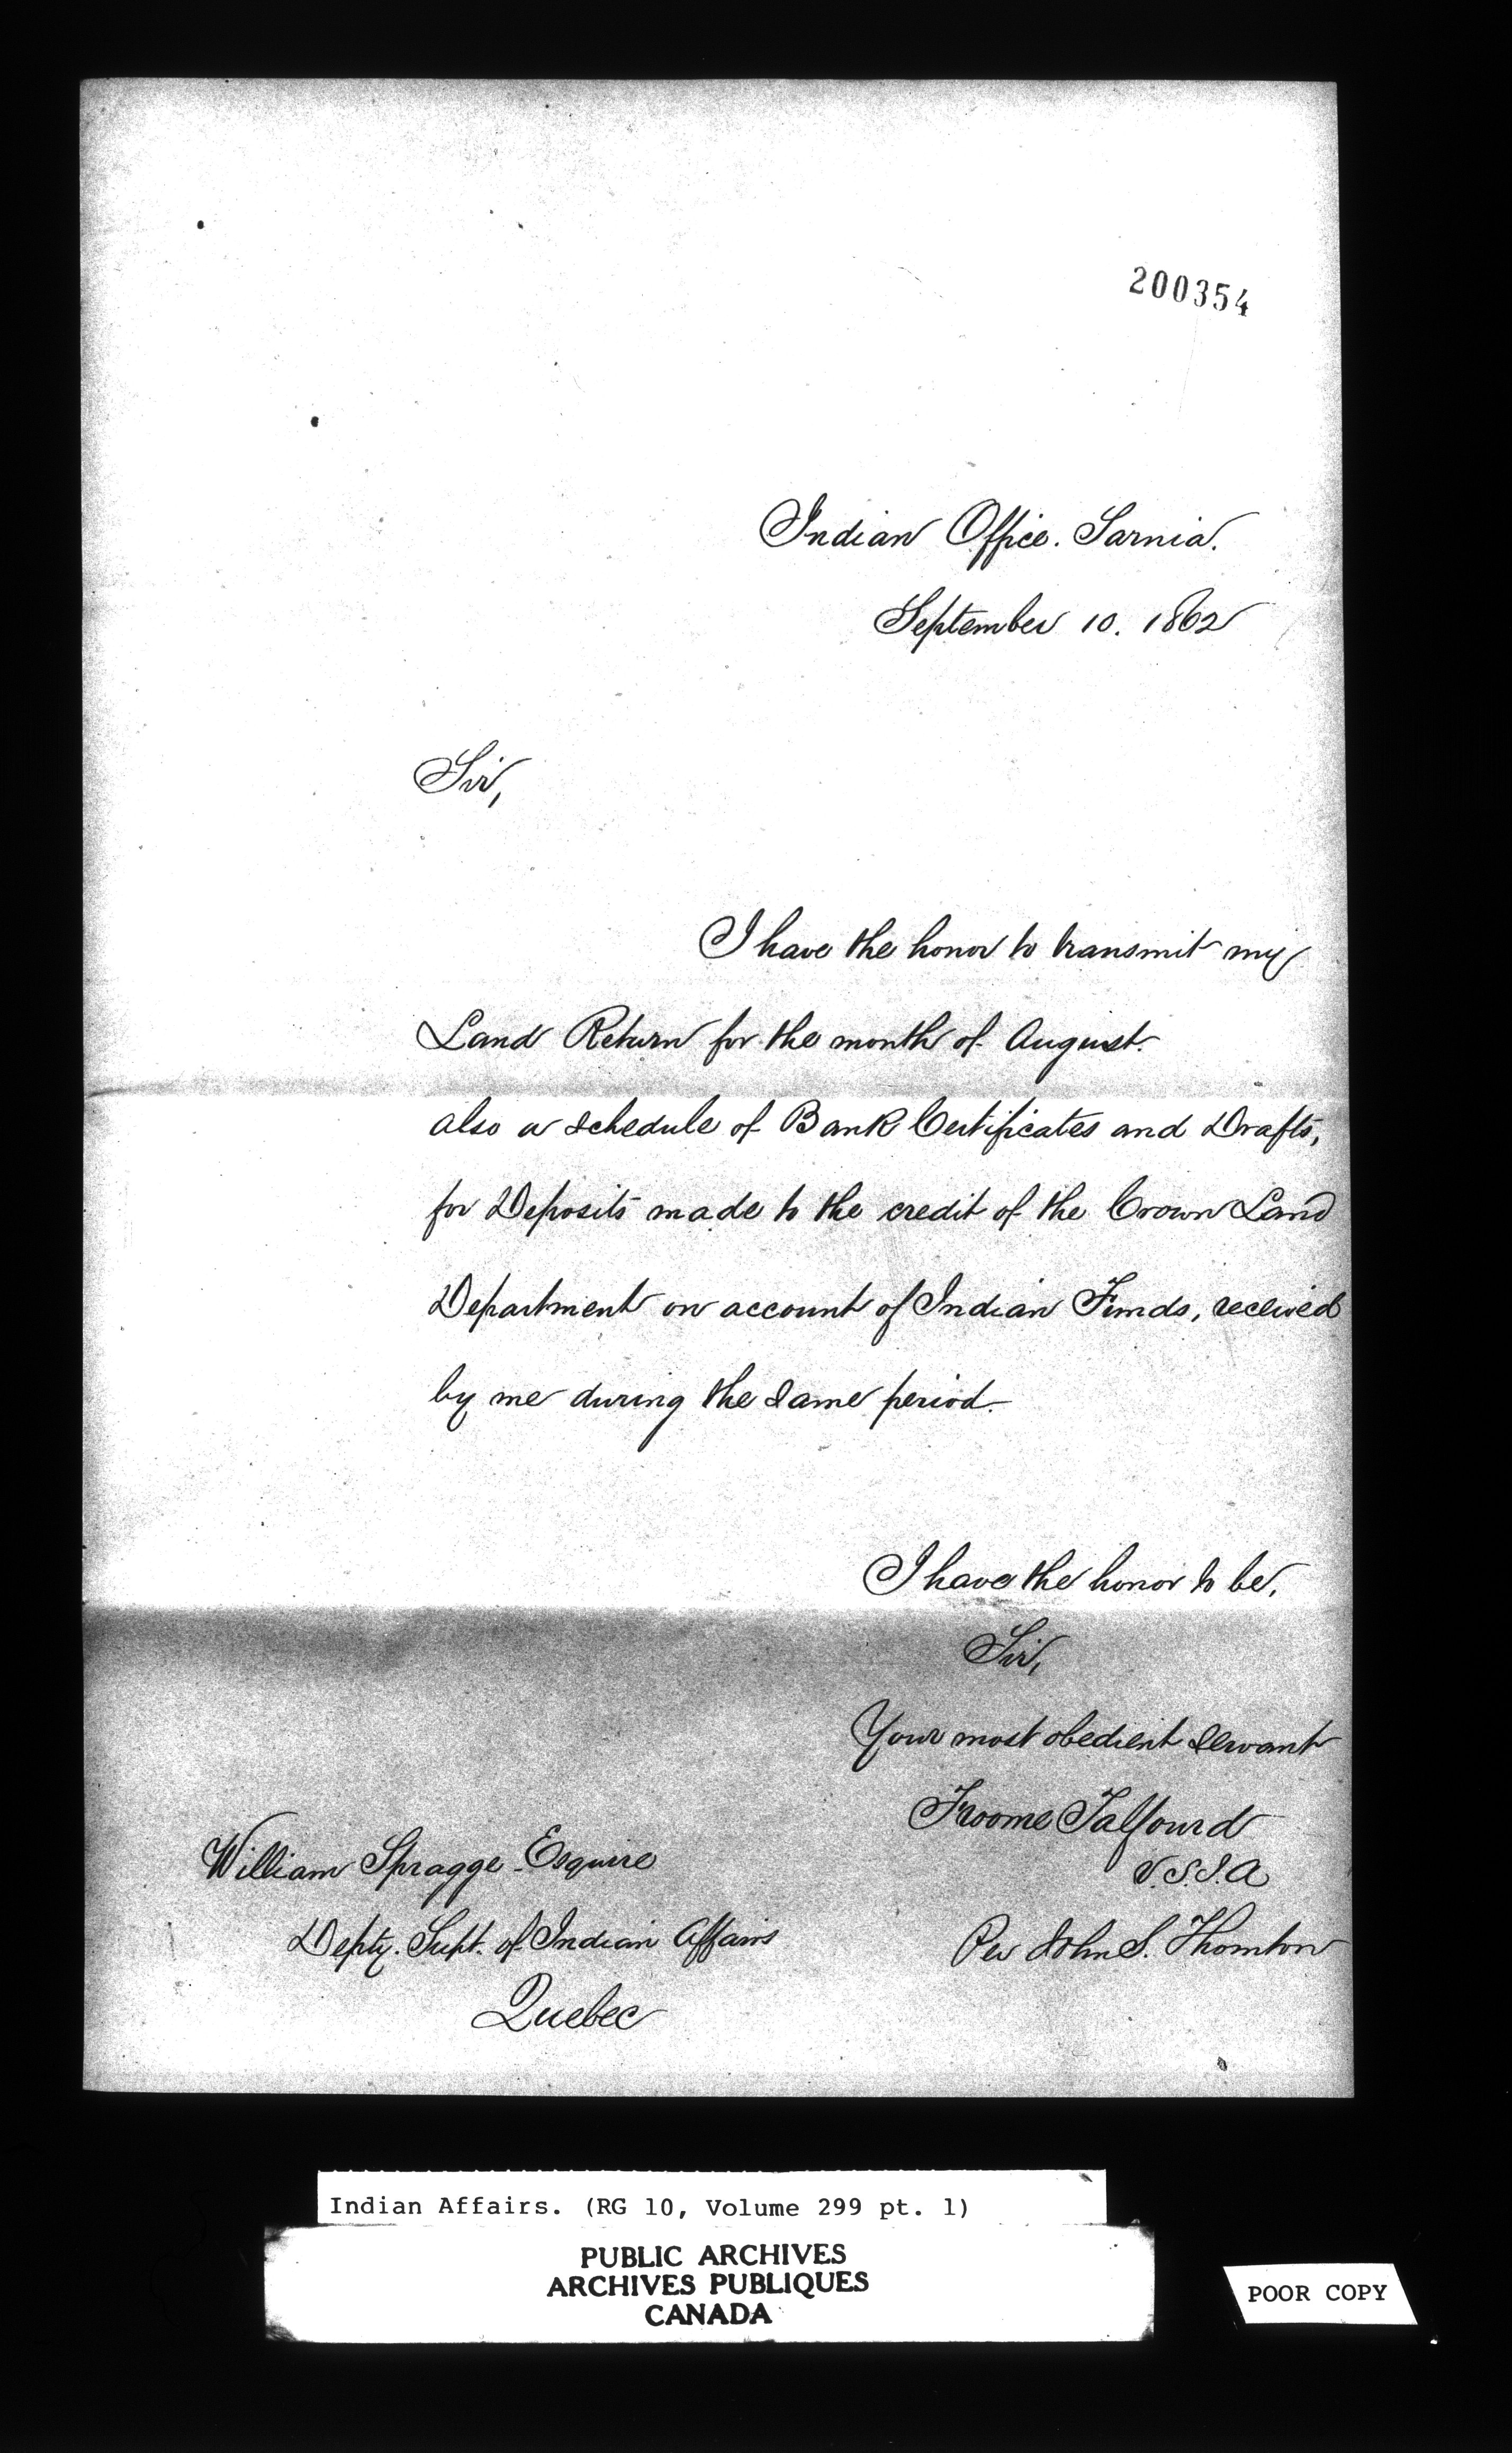 200354
Indian Office. Sarnia.
September 10. 1862
Sir,
I have the honor to transmit my
Land Return for the month of August.
also a schedule of Bank Certificates and Drafts,
for Deposits made to the credit of the Crown Land
Department on account of Indian Funds, received
by me during the same period.
I have the honor to be,
Sir,
Your most obedient servant
Froome Talfourd
V.S.I.A
Per John S. Thomton
William Spragge Esquire
Depty. Supt. of Indian Affairs
Quebec
Indian Affairs. (RG 10, Volume 299 pt. 1)
PUBLIC ARCHIVES
ARCHIVES PUBLIQUES
CANADA
POOR COPY